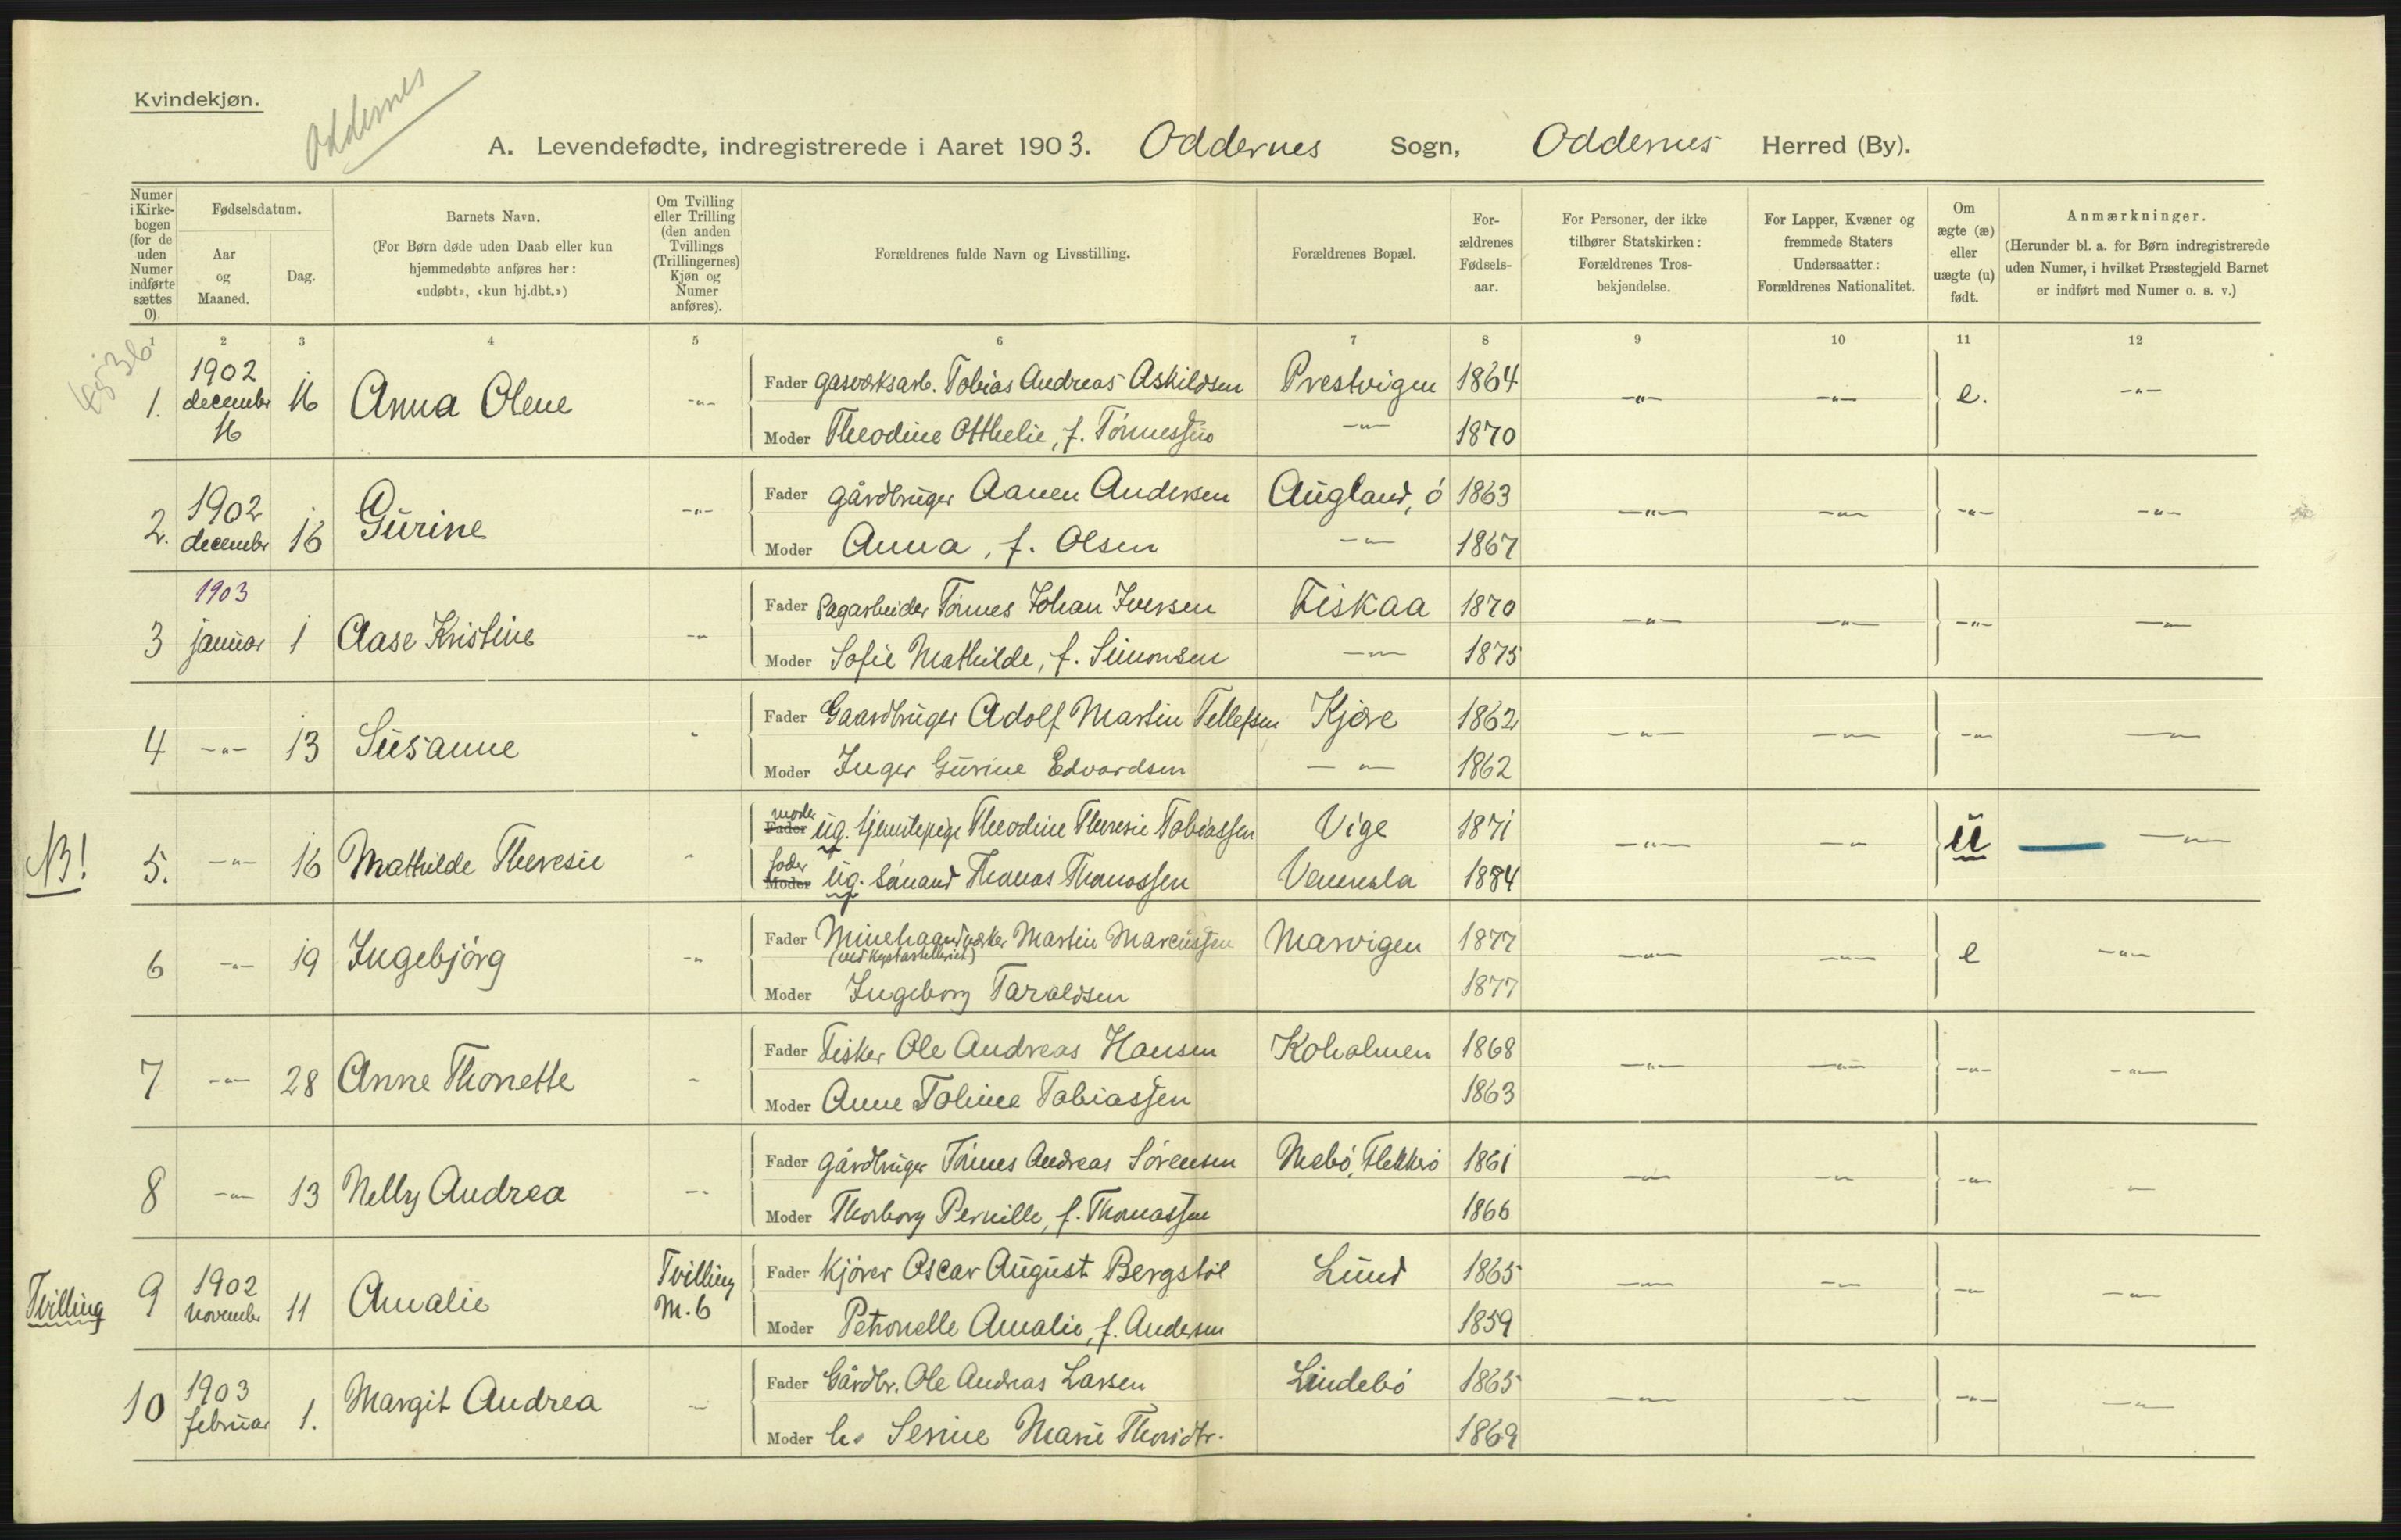 Kvindekjøn.
Oddernes
A. Levendefødte, indregistrerede i Aaret 1903. Oddernes Sogn, Oddernes Herred (By).
Numer i Kirkebogen (for de uden Numer indførte sættes 0).
Fødselsdatum.
Aar og Maaned.
Dag.
Barnets Navn.
(For Børn døde uden Daab eller kun hjemmedøbte anføres her: «udøbt», «kun hj.dbt.»)
Om Tvilling eller Trilling (den anden Tvillings (Trillingernes) Kjøn og Numer anføres).
Forældrenes fulde Navn og Livsstilling.
Forældrenes Bopæl.
Forældrenes Fødselsaar.
For Personer, der ikke tilhører Statskirken: Forældrenes Trosbekjendelse.
For Lapper, Kvæner og fremmede Staters Undersaatter: Forældrenes Nationalitet.
Om ægte (æ) eller uægte (u) født.
Anmærkninger.
(Herunder bl. a. for Børn indregistrerede uden Numer, i hvilket Præstegjeld Barnet er indført med Numer o. s. v.)
1 2 3 4 5 6 7 8 9 10 11 12
1. 1902 december 16 16 Anna Olene -"- Fader gasværksarb. Tobias Andreas Askildsen Prestvigen 1864 -"- -"- e. -"-
Moder Theodine Otthelie, f. Tönnessen -"- 1870
2. 1902 december 16 Gurine -"- Fader gårdbruger Aanen Andersen Augland, ö 1863 -"- -"- -"- -"-
Moder Anna, f. Olsen -"- 1867
3 1903 januar 1 Aase Kristine -"- Fader Sagarbeider Tönnes Johan Iversen Fiskaa 1870 -"- -"- -"- -"-
Moder Sofie Mathilde, f. Simonsen -"- 1875
4 -"- 13 Susanne " Fader Gaardbruger Adolf Martin Tellefsen Kjære 1862 -"- -"- -"- -"-
Moder Inger Gurine Edvardsen -"- 1862
NB! 5. -"- 16 Mathilde Theresie " Fader moder ug. tjenestepige Theodine Theresie Tobiassen Vige 1871 -"- -"- u -"-
Moder fader ug. Sömand Thomas Thomassen Vennesla 1884
6 -"- 19 Ingebjörg -"- Fader Minehaandværker Martin Marcussen Marvigen 1877 -"- -"- e -"-
(ved Kystartilleriet)
Moder Ingeborg Taraldsen 1877
7 -"- 28 Anne Thonette - Fader Fisker Ole Andreas Hansen Koholmen 1868 -"- -"- -"- -"-
Moder Anne Toline Tobiassen 1863
8 -"- 13 Nelly Andrea -"- Fader gårdbruger Tönnes Andreas Sörensen Mebö, Flekkerö 1861 -"- -"- -"- -"-
Moder Thorborg Pernille, f. Thomassen 1866
Tvilling 9 1902 November 11 Amalie Tvilling M. 6 Fader Kjörer Oscar August Bergstöl Lund 1865 -"- -"- -"- -"-
Moder Petronelle Amalie, f. Andersen 1859
10 1903 februar 1. Margit Andrea - Fader Gårdbr. Ole Andreas Larsen Lindebö 1865 -"- -"- -"- -"-
Moder h. Serine Marie Thorsdtr. 1869